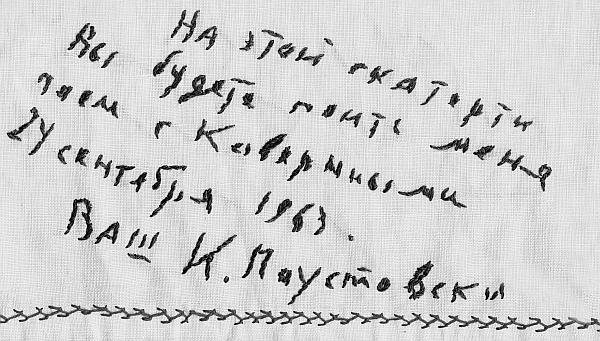 На этой скатерти
Вы будете поить меня
чаем с Коварными
24 сентября 1963.
Ваш К. Паустовски